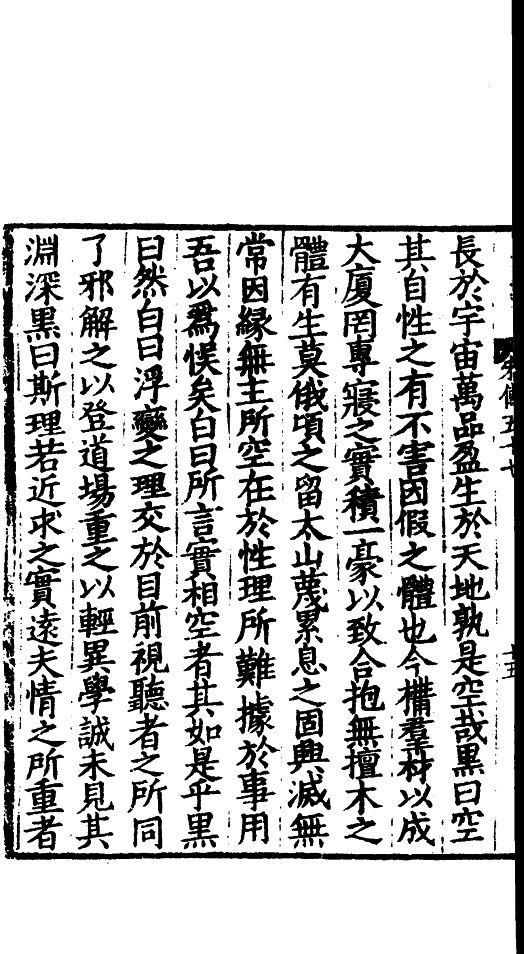 長於宇宙萬品盈生於天地孰是空哉黑曰空
其自性之有不害因假之體也今構羣材以成
大廈罔專寢之實積一豪以致合抱無擅木之
體有生莫俄頃之留太山蔑累息之固興滅無
常因緣無主所空在於性理所難據於事用
吾以爲悮矣白曰所言實相空者其如是乎黑
曰然白曰浮變之理交於目前視聽者之所同
了邪解之以登道場重之以輕異學誠未見其
淵深黑曰斯理若近求之實遠夫情之所重者